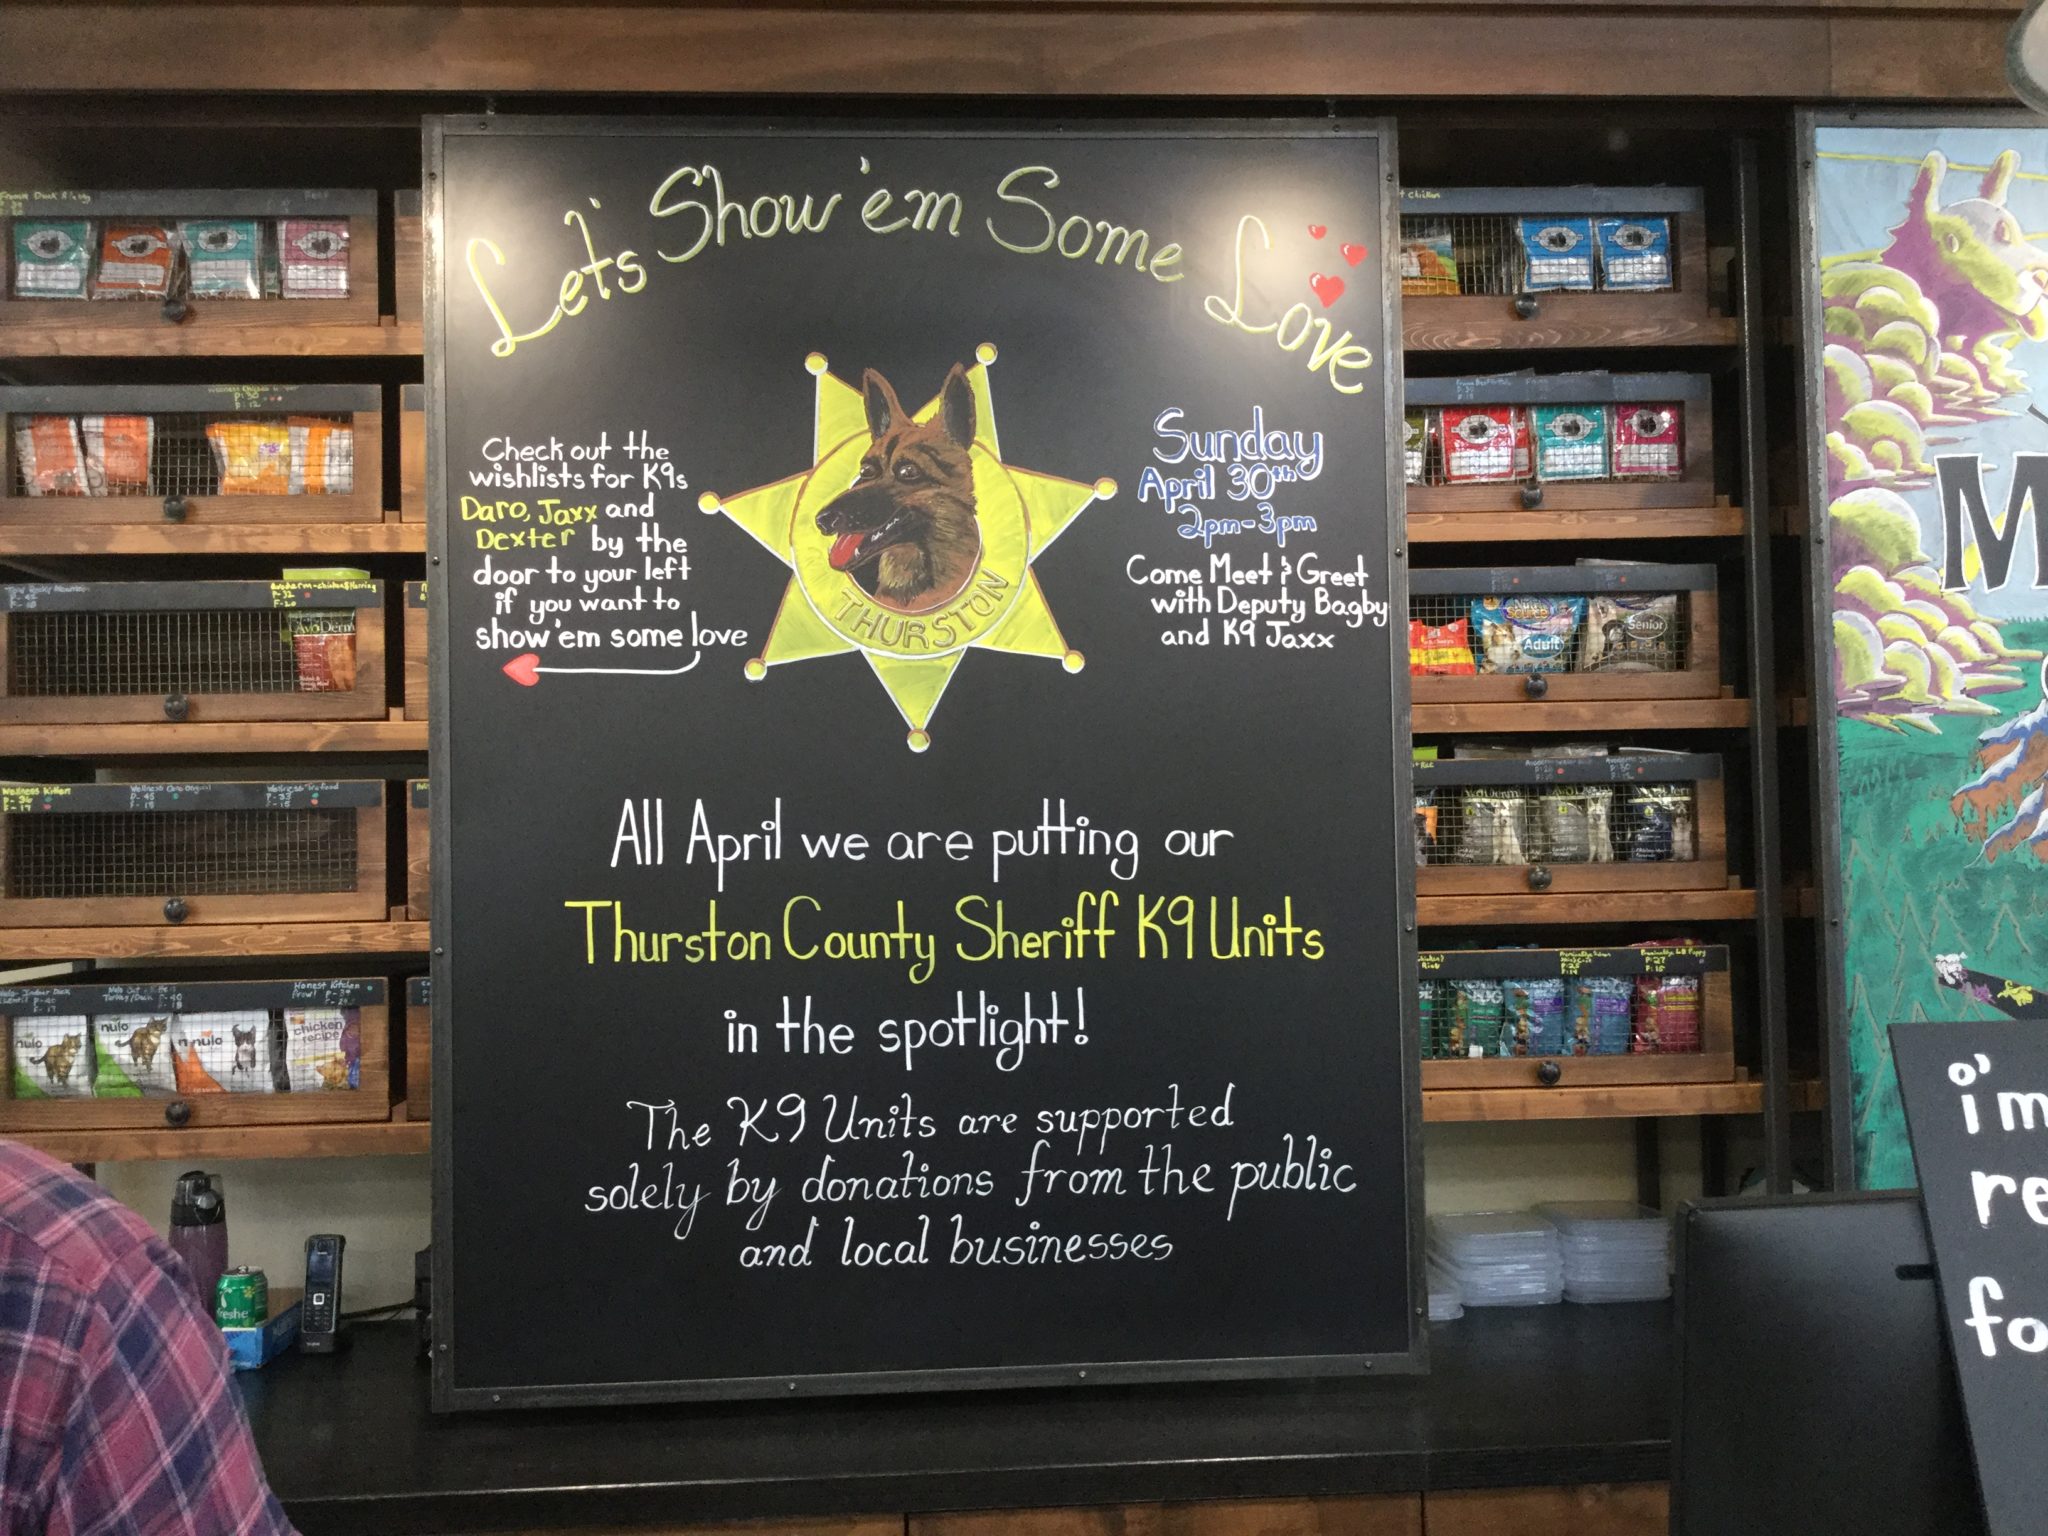 Let's Show 'em Some Love
Check out the
wishlists for K9s
Daro, Jaxx and
Dexter by the
door to your left
if you want to
show 'em some love
THURSTON
Sunday
April 30th
2pm-3pm
Come Meet & Greet
with Deputy Bagby
and K9 Jaxx
All April we are putting our
Thurston County Sheriff K9 Units
in the spotlight!
The K9 Units are supported
solely by donations from the public
and local businesses
Wellness Kitten
AvoDerm
nulo
nulo
nulo
chicken
recipe
Adult
Senior
AvoDerm
M
i'm
re
fo